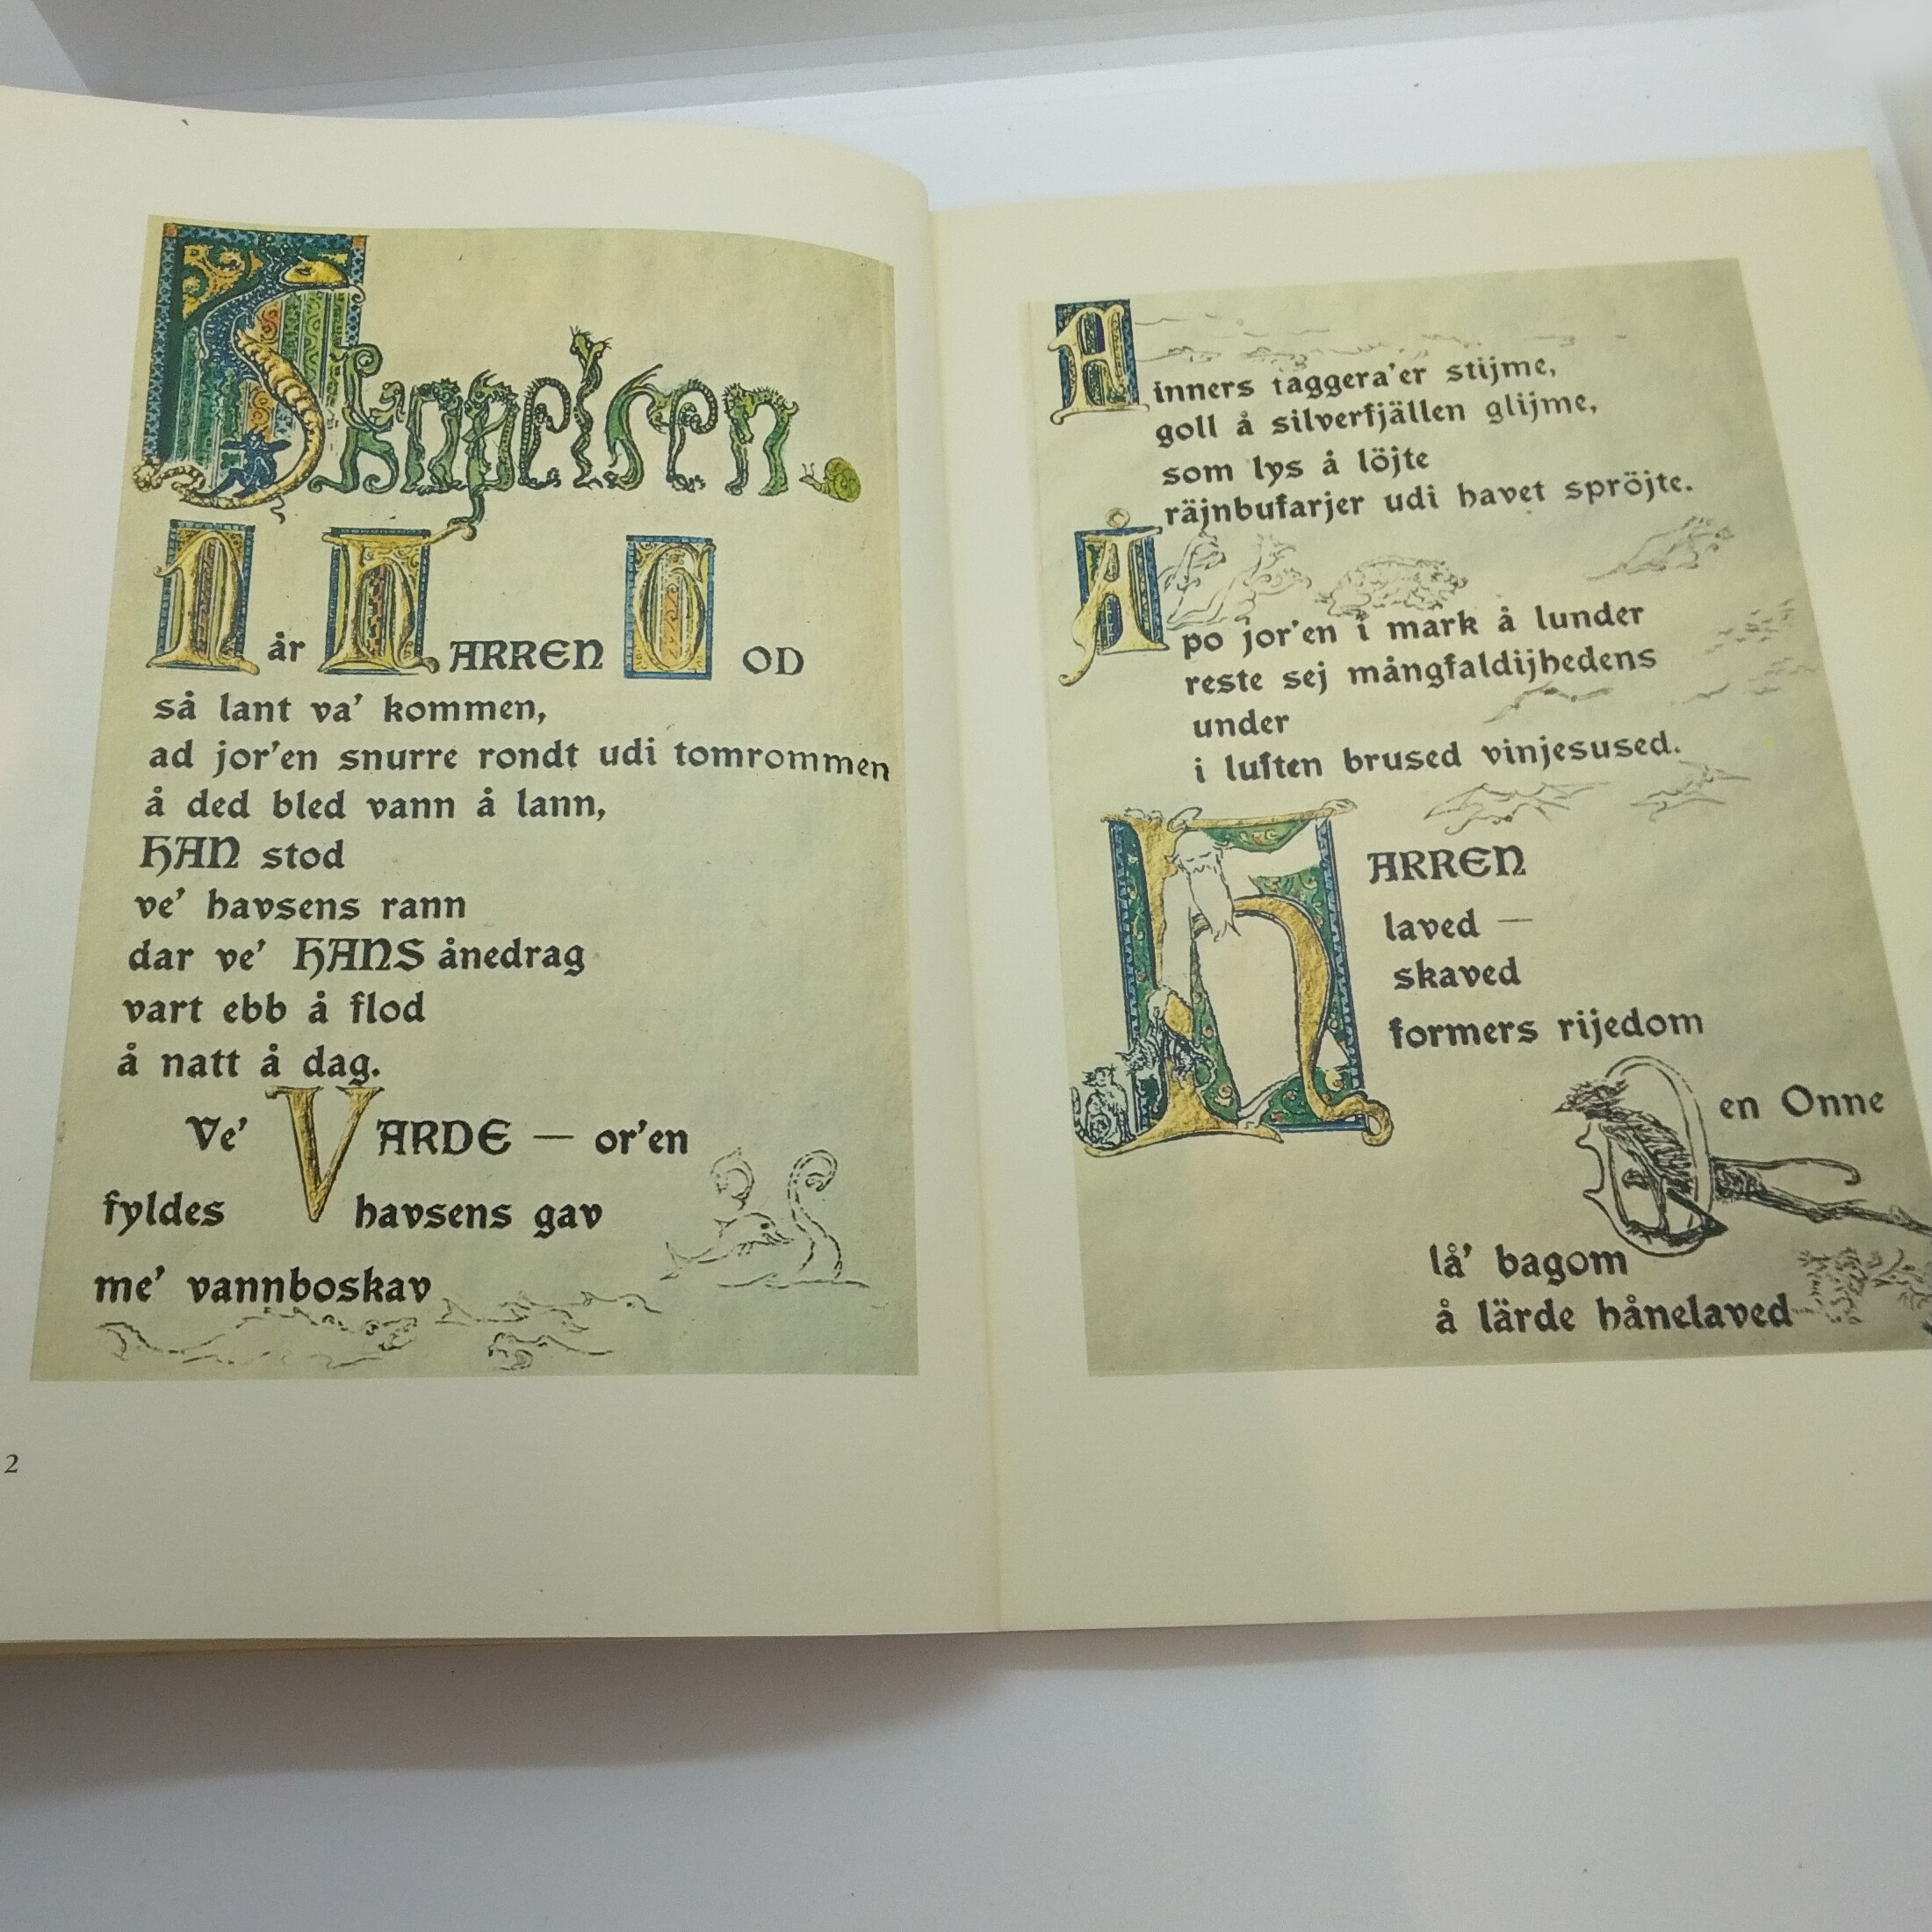 Skapelsen.
När HARREN GOD
så lant va' kommen,
ad jor'en snurre rondt udi tomrommen
å ded bled vann å lann,
HAN stod
ve' havsens rann
dar ve' HANS ånedrag
vart ebb å flod
å natt å dag.
Ve' VARDE — or'en
fyldes havsens gav
me' vannboskav
2
Hinners taggera'er stijme,
goll å silverfjällen glijme,
som lys å löjte
räjnbufarjer udi havet spröjte.
Å
po jor'en i mark å lunder
reste sej mångfaldijhedens
under
i luften brused vinjesused.
HARREN
laved —
skaved
formers rijedom
Den Onne
lå' bagom
å lärde hånelaved